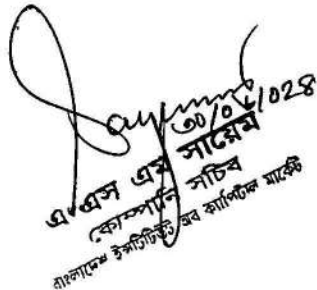 ৩০/০৮/০২৪
এ এস এম সায়েম
কোম্পানি সচিব
বাংলাদেশ ইনস্টিটিউট অব ক্যাপিটাল মার্কেট